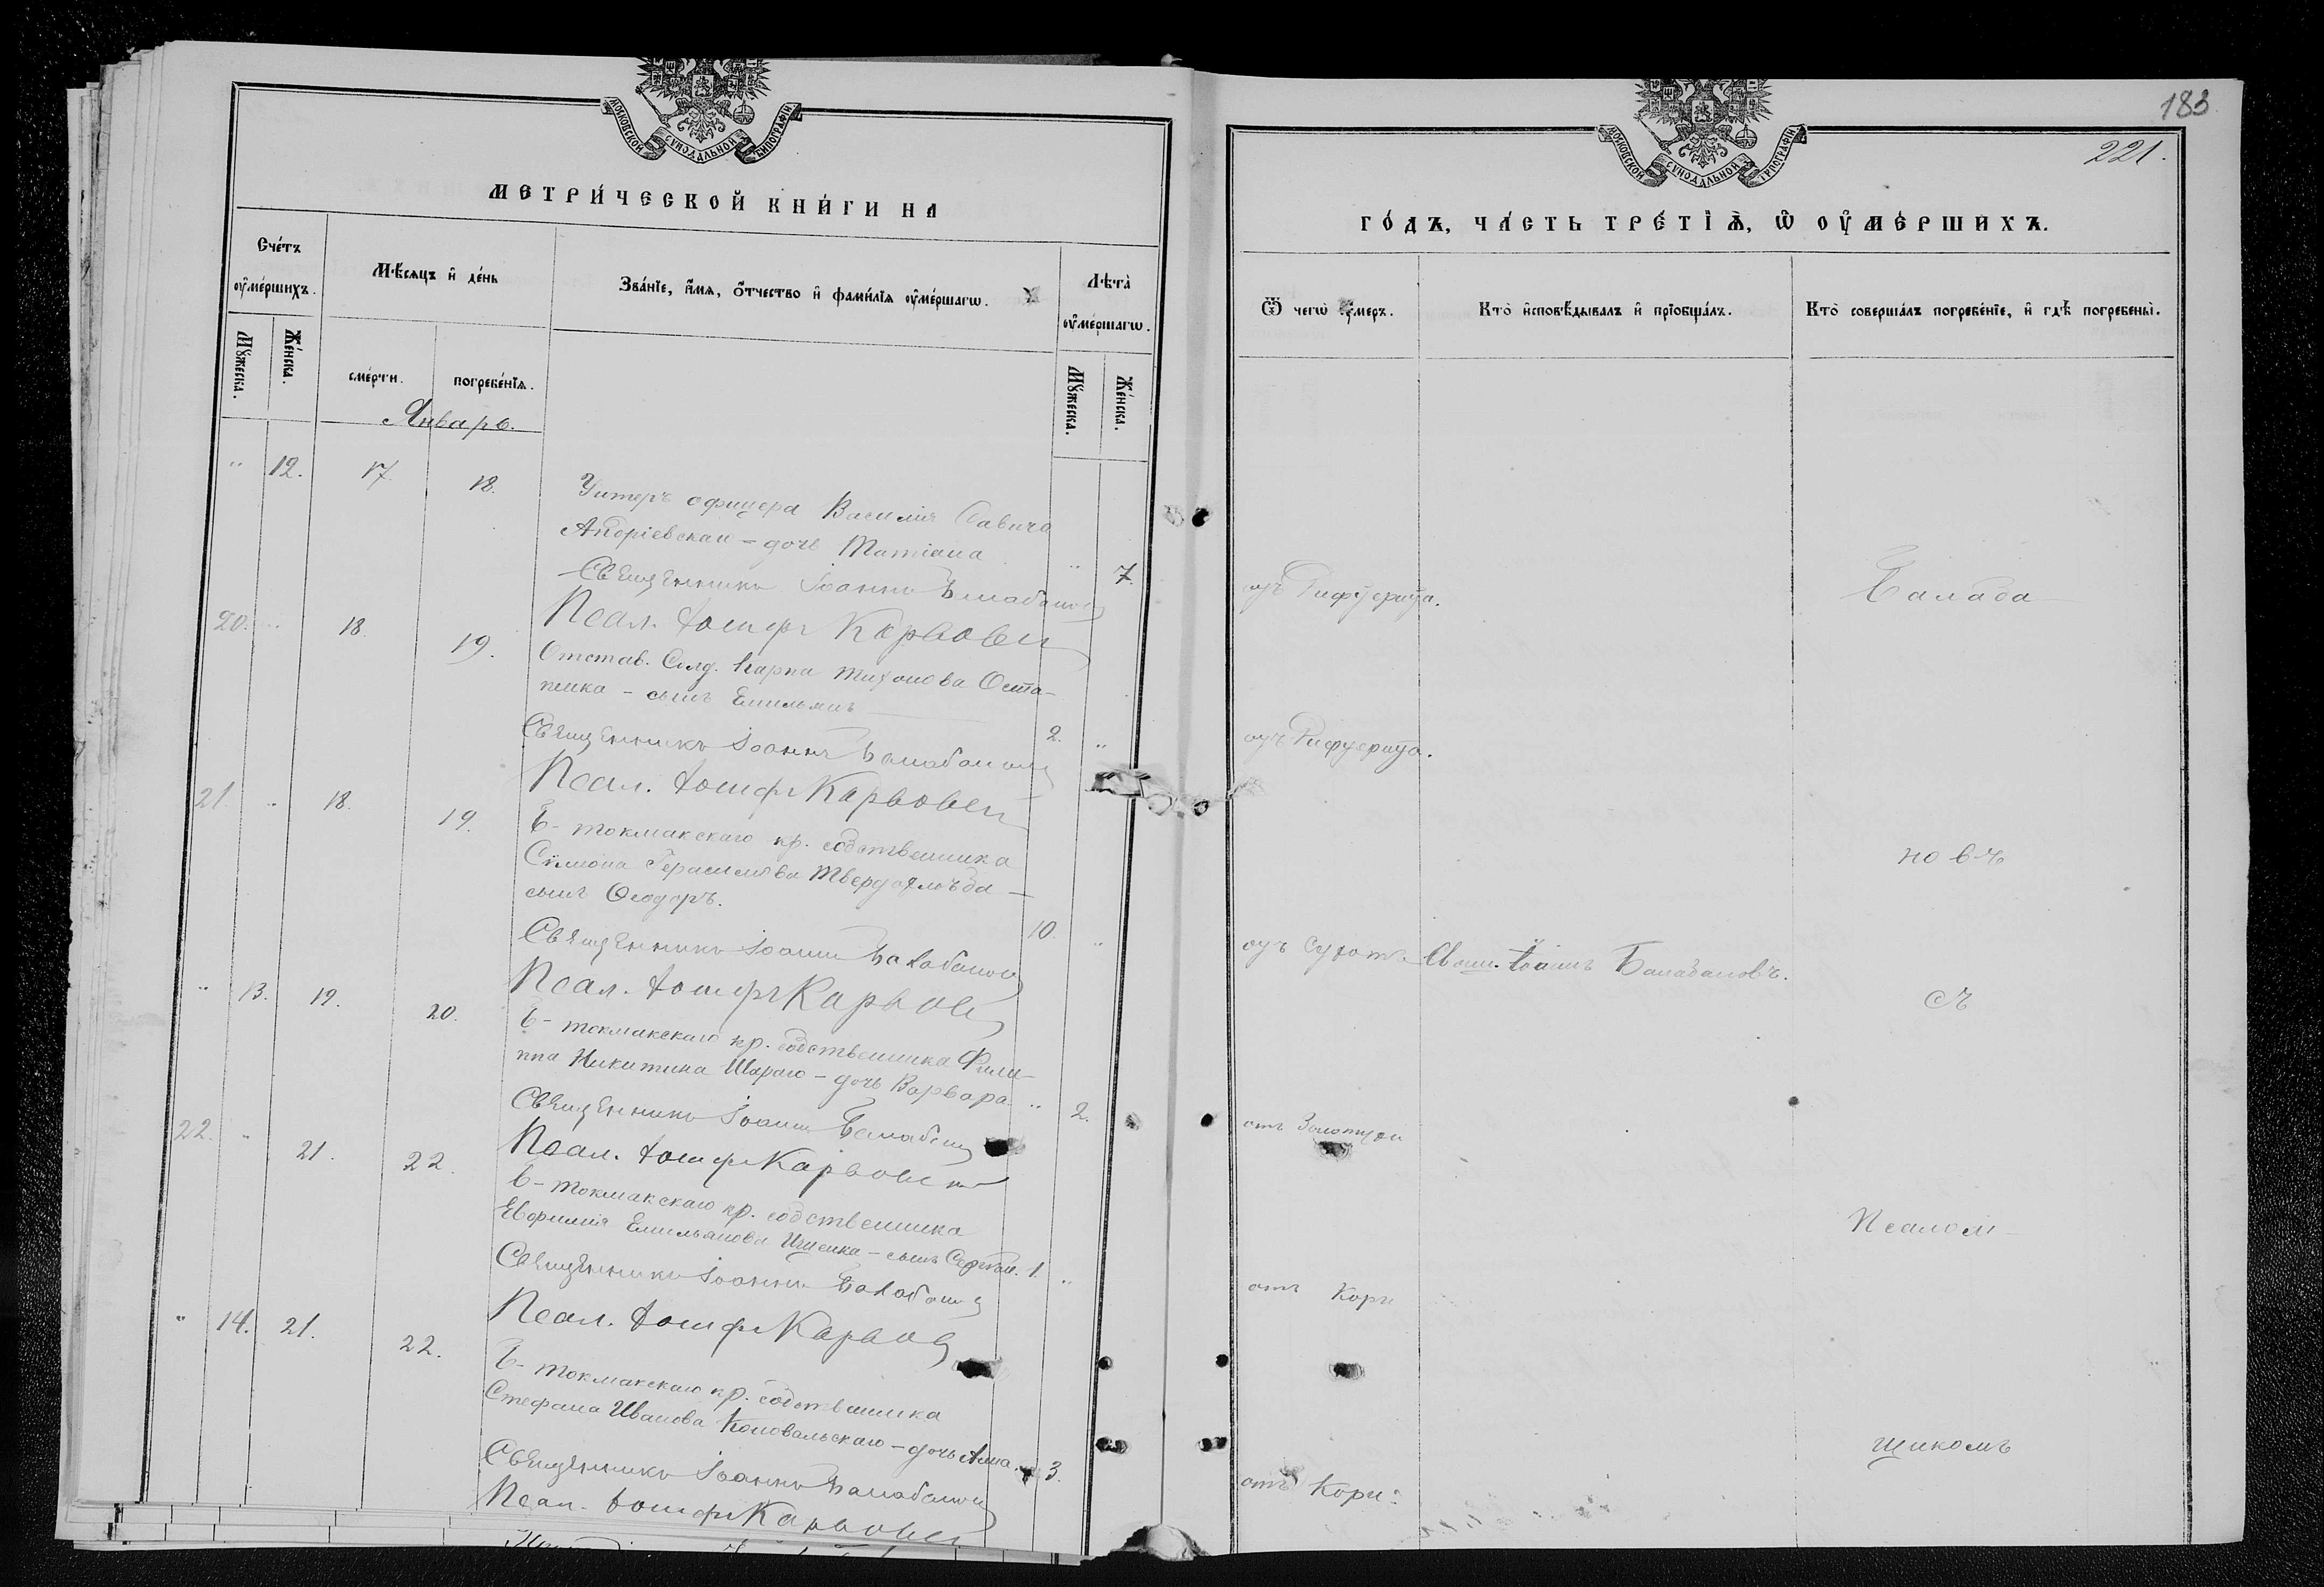 МОСКОВСКОЙ СѴНОДАЛЬНОЙ ТИПОГРАФІИ
МЕТРИ́ЧЕСКОЙ КНИ́ГИ НА
Сче́тъ оу҆ме́ршихъ.
Мѣ́сяцъ и҆ де́нь
Зва́нїе, и҆́мя, ѻ҆́тчество и҆ фами́лїя оу҆ме́ршагѡ.
Лѣ́та оу҆ме́ршагѡ.
Мꙋ́жеска.
Же́нска.
сме́рти.
погребе́нїя.
Мꙋ́жеска.
Же́нска.
Январь.
" 12. 17. 18.
Унтеръ офицера Василія Савича
Андріевскаго – дочь Татіана " 7.
Священникъ Іоаннъ Балабановъ
Псал. Іосифъ
20. " 18. 19.
Отстав. Солд. Карпа Тихонова Оста-
пенка – сынъ Емельянъ 2. "
Священникъ Іоаннъ Балабановъ
Псал. Іосифъ
21. " 18. 19.
Б-токмакскаго кр. собственника
Сѵмеона Герасимова Твердохлѣба –
сынъ Ѳеодоръ. 10. "
Священникъ Іоаннъ Балабановъ
Псал. Іосифъ
" 13. 19. 20.
Б-токмакскаго кр. собственника Фили-
ппа Никитина Шараго – дочь Варвара. " 2.
Священникъ Іоаннъ Балабановъ
Псал. Іосифъ
22. " 21. 22.
Б-токмакскаго кр. собственника
Евфимія Емельянова Ищенка – сынъ 1. "
Священникъ Іоаннъ Балабановъ
Псал. Іосифъ
" 14. 21. 22.
Б-токмакскаго кр. собственника
Стефана Иванова Коновальскаго – дочь Анна. " 3.
Священникъ Іоаннъ Балабановъ
Псал. Іосифъ
183
221.
МОСКОВСКОЙ СѴНОДАЛЬНОЙ ТИПОГРАФІИ
ГО́ДЪ, ЧА́СТЬ ТРЕ́ТЇЯ, Ѡ҆ ОУ҆МЕ́РШИХЪ.
Ѿ чегѡ̀ оу҆́меръ.
Кто̀ и҆сповѣ́дывалъ и҆ прїобща́лъ.
Кто̀ соверша́лъ погребе́нїе, и҆ гдѣ̀ погребены̀.
отъ Дифтерита.
Балаба
отъ Дифтерита.
новъ
отъ Сухот. Свящ. Іоаннъ Балабановъ.
съ
отъ Золотухи
Псалом-
отъ Кори
щикомъ
отъ Кори.